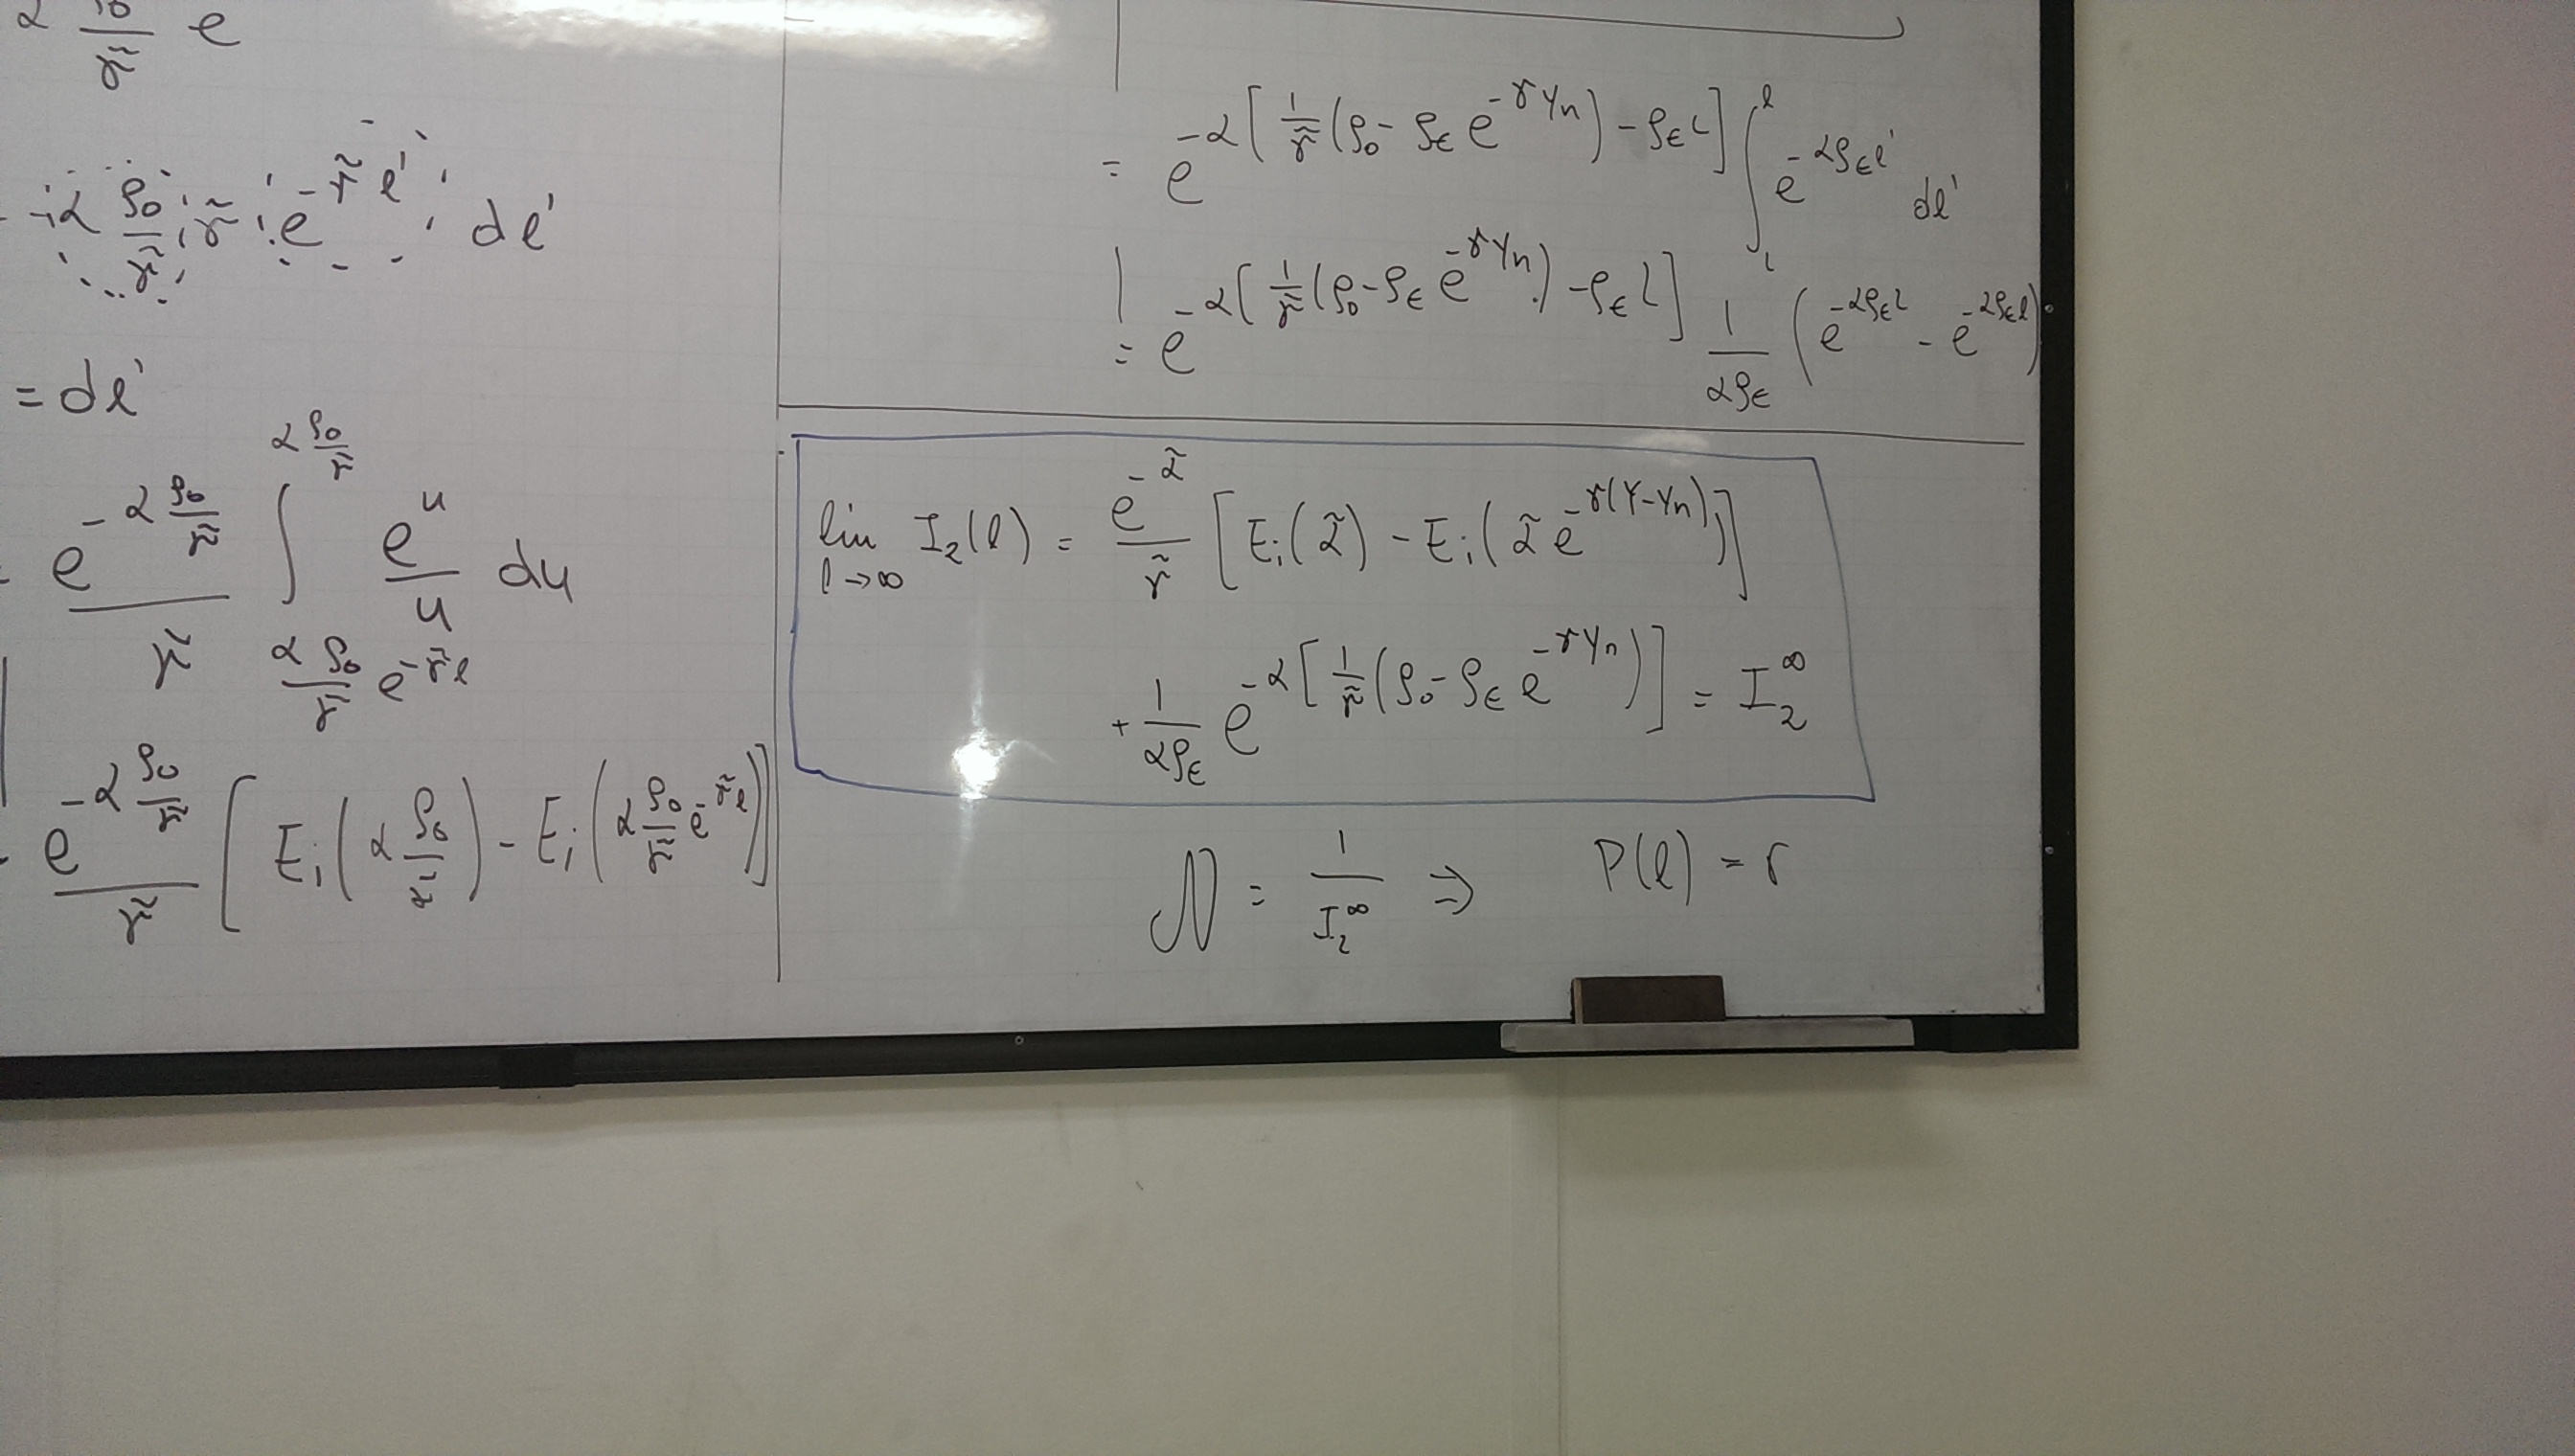 α ρ₀/γ̃ e
-α ρ₀/γ̃ γ̃ e^{-γ̃ℓ'} dℓ'
= dℓ'
e^{-α ρ₀/γ̃}/γ̃ ∫_{α ρ₀/γ̃ e^{-γ̃ℓ}}^{α ρ₀/γ̃} e^u/u du
e^{-α ρ₀/γ̃}/γ̃ [Ei(α ρ₀/γ̃) - Ei(α ρ₀/γ̃ e^{-γ̃ℓ})]
= e^{-α[1/γ̃(ρ₀ - ρ_ϵ e^{-γY_n}) - ρ_ϵ L]} ∫_L^ℓ e^{-αρ_ϵℓ'} dℓ'
= e^{-α[1/γ̃(ρ₀ - ρ_ϵ e^{-γY_n}) - ρ_ϵ L]} 1/(αρ_ϵ) (e^{-αρ_ϵL} - e^{-αρ_ϵℓ})
lim_{ℓ→∞} I₂(ℓ) = e^{-α̃}/γ̃ [Ei(α̃) - Ei(α̃ e^{-γ(Y-Y_n)})]
+ 1/(αρ_ϵ) e^{-α[1/γ̃(ρ₀ - ρ_ϵ e^{-γY_n})]} = I₂^∞
𝒩 = 1/I₂^∞ ⇒ P(ℓ) = r